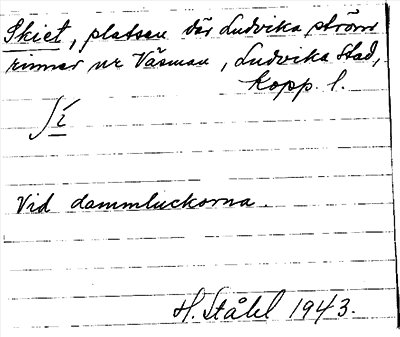 Skiet, platsen där Ludvika ström
rinner ur Väsman, Ludvika Stad,
Kopp. l.
Vid dammluckorna.
H. Ståhl 1943.